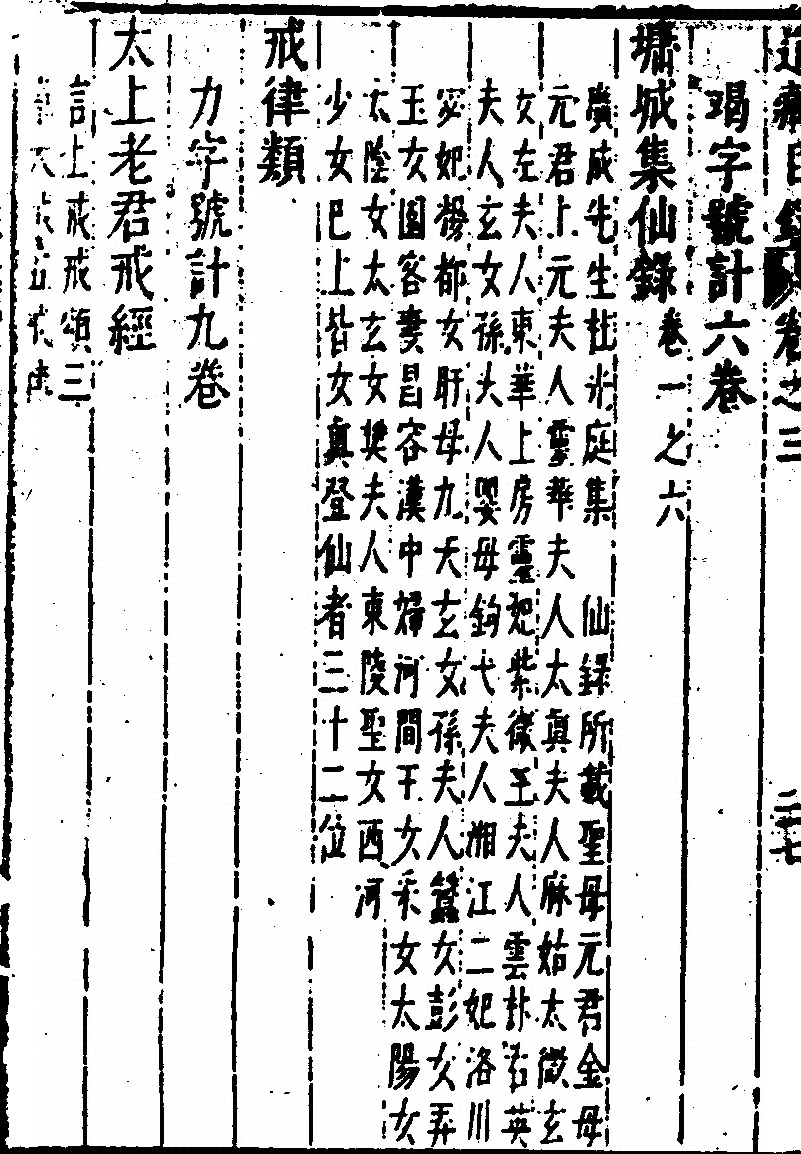 道藏目錄 卷之三 二十七
竭字號計六卷
墉城集仙錄 卷一之六
廣成先生杜光庭集 仙錄所載聖母元君金母
元君上元夫人靈華夫人太真夫人麻姑太微玄
女左夫人東華上房靈妃紫微王夫人雲林右英
夫人玄女孫夫人嬰母鉤弋夫人湘江二妃洛川
宓妃楊都女盱母九天玄女孫夫人蠶女彭女弄
玉女園客妻昌容漢中婦河間王女采女太陽女
太陰女太玄女樊夫人東陵聖女西河
少女已上皆女真登仙者三十二位
戒律類
力字號計九卷
太上老君戒經
言上戒戒頌三